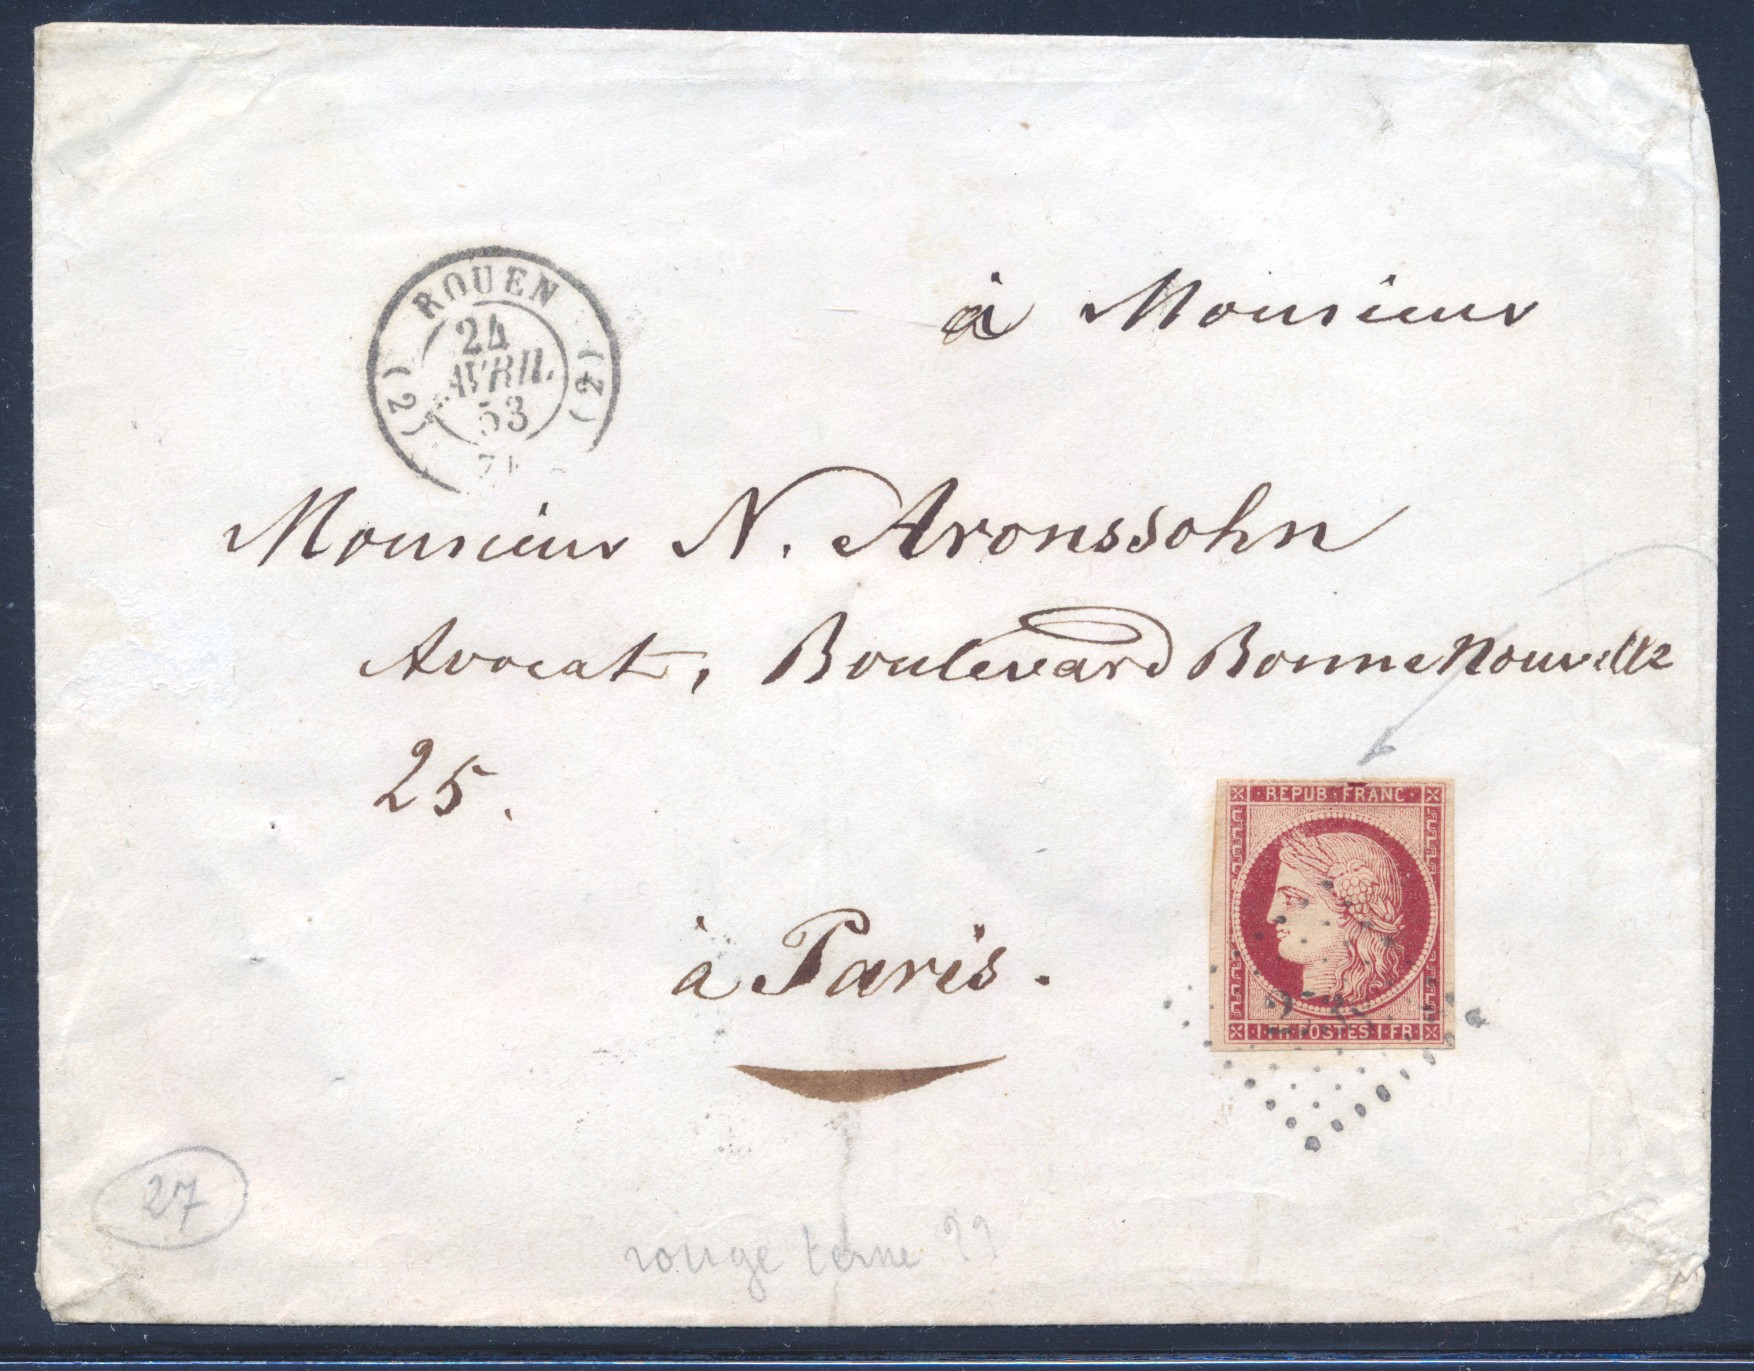 ROUEN
(2) (2)
24
AVRIL
53
à Monsieur
Monsieur N. Aronssohn
Avocat, Boulevard Bonne Nouvelle
25.
REPUB·FRANC·
1·FR·POSTES·1·FR
à Paris.
27
rouge terne ??